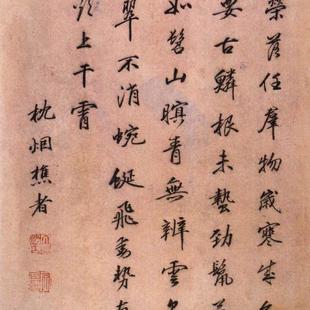 榮落任羣物歲寒生
古鱗根未蟄勁鬣
如髻山暝青無辨雲
翠不消蜿蜒飛勢
上干霄
枕烟樵者